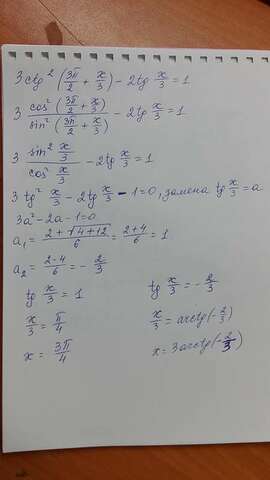 3 ctg² (3π/2 + x/3) - 2tg x/3 = 1
3 cos² (3π/2 + x/3) / sin² (3π/2 + x/3) - 2tg x/3 = 1
3 sin² x/3 / cos² x/3 - 2tg x/3 = 1
3 tg² x/3 - 2tg x/3 - 1 = 0, замена tg x/3 = a
3a² - 2a - 1 = 0
a₁ = (2 + √4+12)/6 = (2+4)/6 = 1
a₂ = (2-4)/6 = - 2/3
tg x/3 = 1
x/3 = π/4
x = 3π/4
tg x/3 = - 2/3
x/3 = arctg(- 2/3)
x = 3arctg(- 2/3)